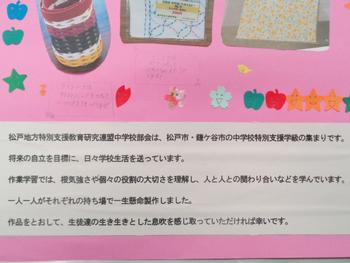 松戸地方特別支援教育研究連盟中学校部会は、松戸市・鎌ケ谷市の中学校特別支援学級の集まりです。
将来の自立を目標に、日々学校生活を送っています。
作業学習では、根気強さや個々の役割の大切さを理解し、人と人との関わり合いなどを学んでいます。
一人一人がそれぞれの持ち場で一生懸命製作しました。
作品をとおして、生徒達の生き生きとした息吹を感じ取っていただければ幸いです。